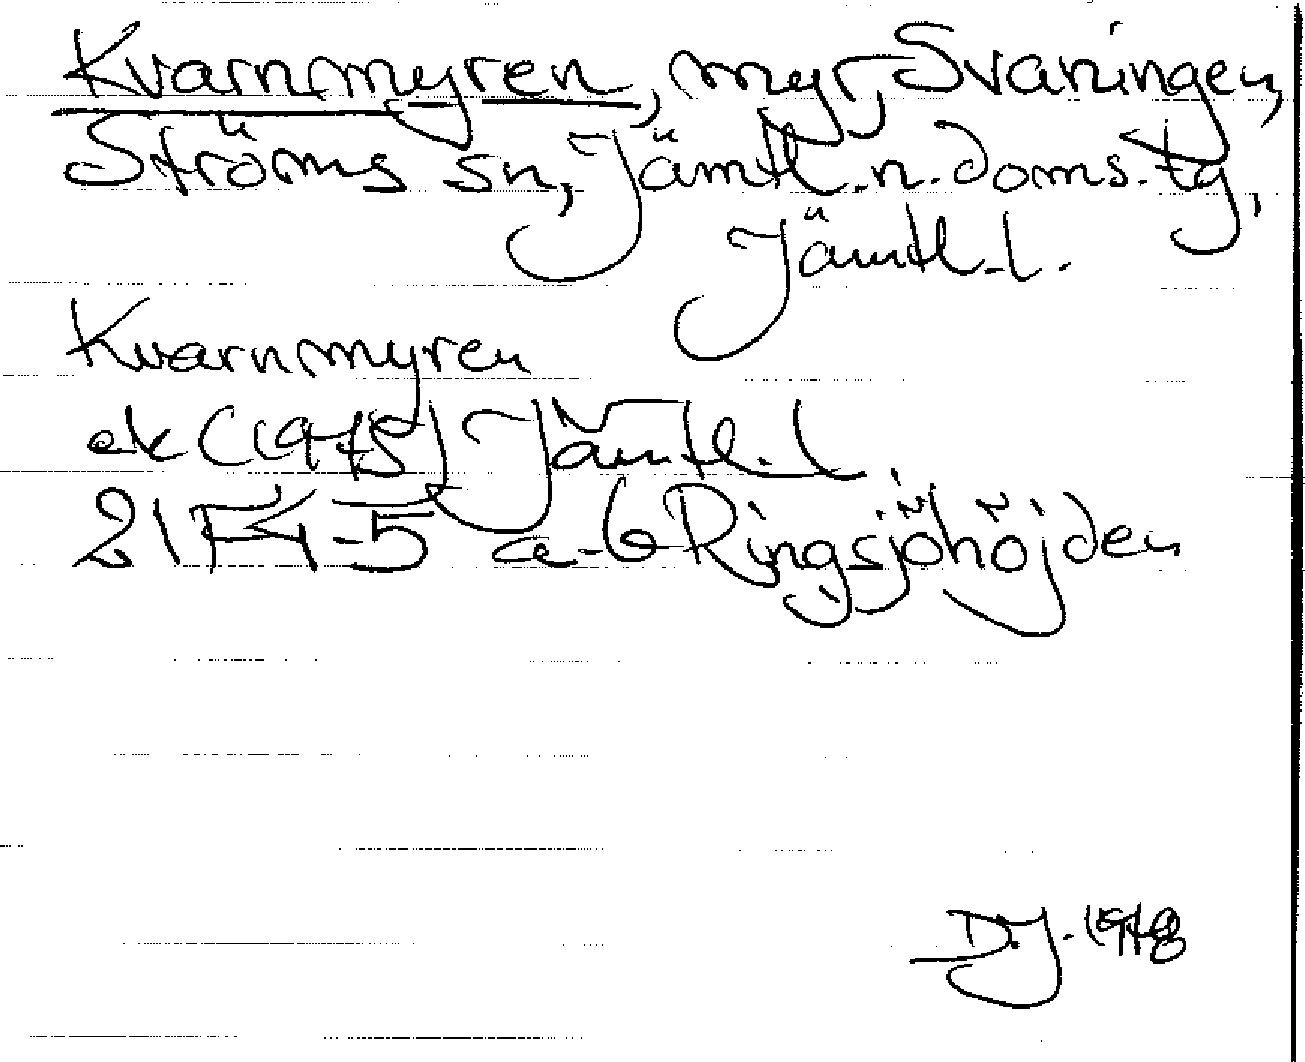 Kvarnmyren, myr, Svaningen,
Ströms sn, Jämtl. n. doms. tg,
Jämtl. l.
Kvarnmyren
ek (1975) Jämtl. l.
21F 4-5 a-b Ringsjöhöjden
D.J. 1978